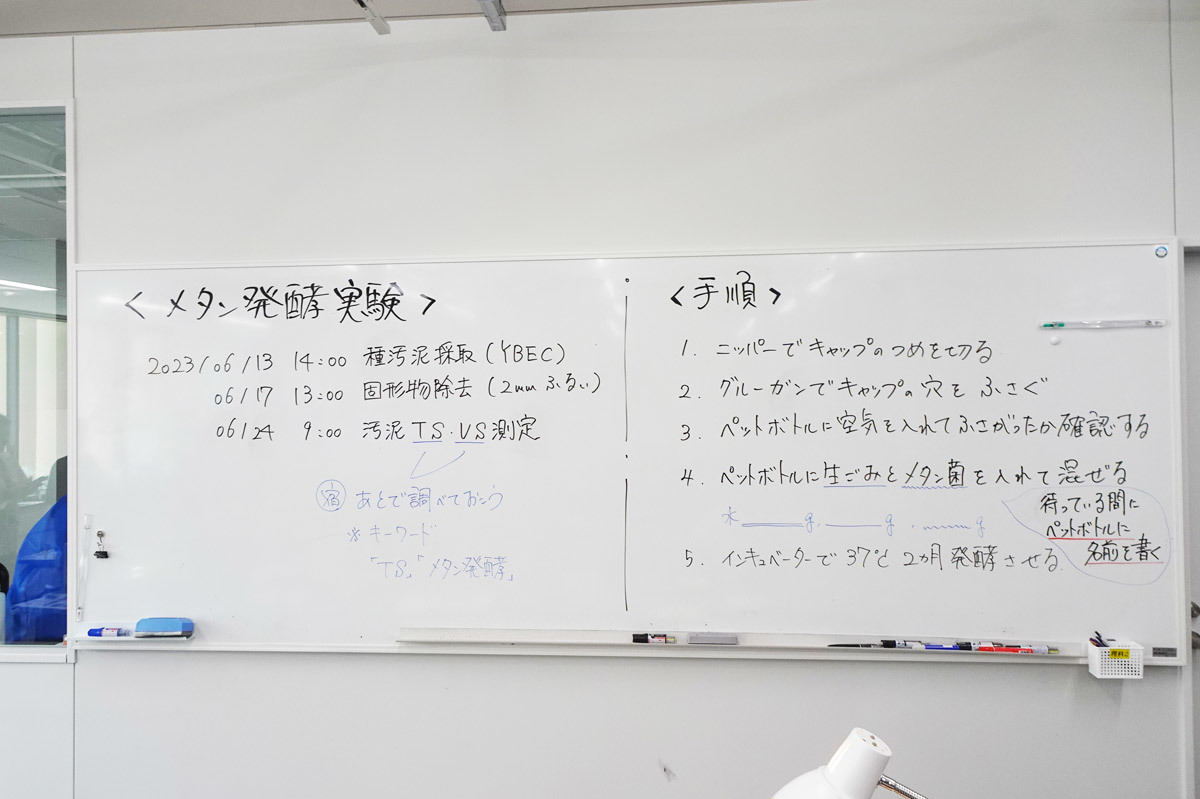 〈メタン発酵実験〉
2023/06/13 14:00 種汚泥採取(YBEC)
06/17 13:00 固形物除去(2mmふるい)
06/24 9:00 汚泥TS・VS測定
宿 あとで調べておこう
※キーワード
「TS」「メタン発酵」
〈手順〉
1. ニッパーでキャップのつめを切る
2. グルーガンでキャップの穴をふさぐ
3. ペットボトルに空気を入れてふさがったか確認する
4. ペットボトルに生ごみとメタン菌を入れて混ぜる
g. g. g
待っている間に
ペットボトルに
名前を書く
5. インキュベーターで37℃ 2カ月発酵させる.